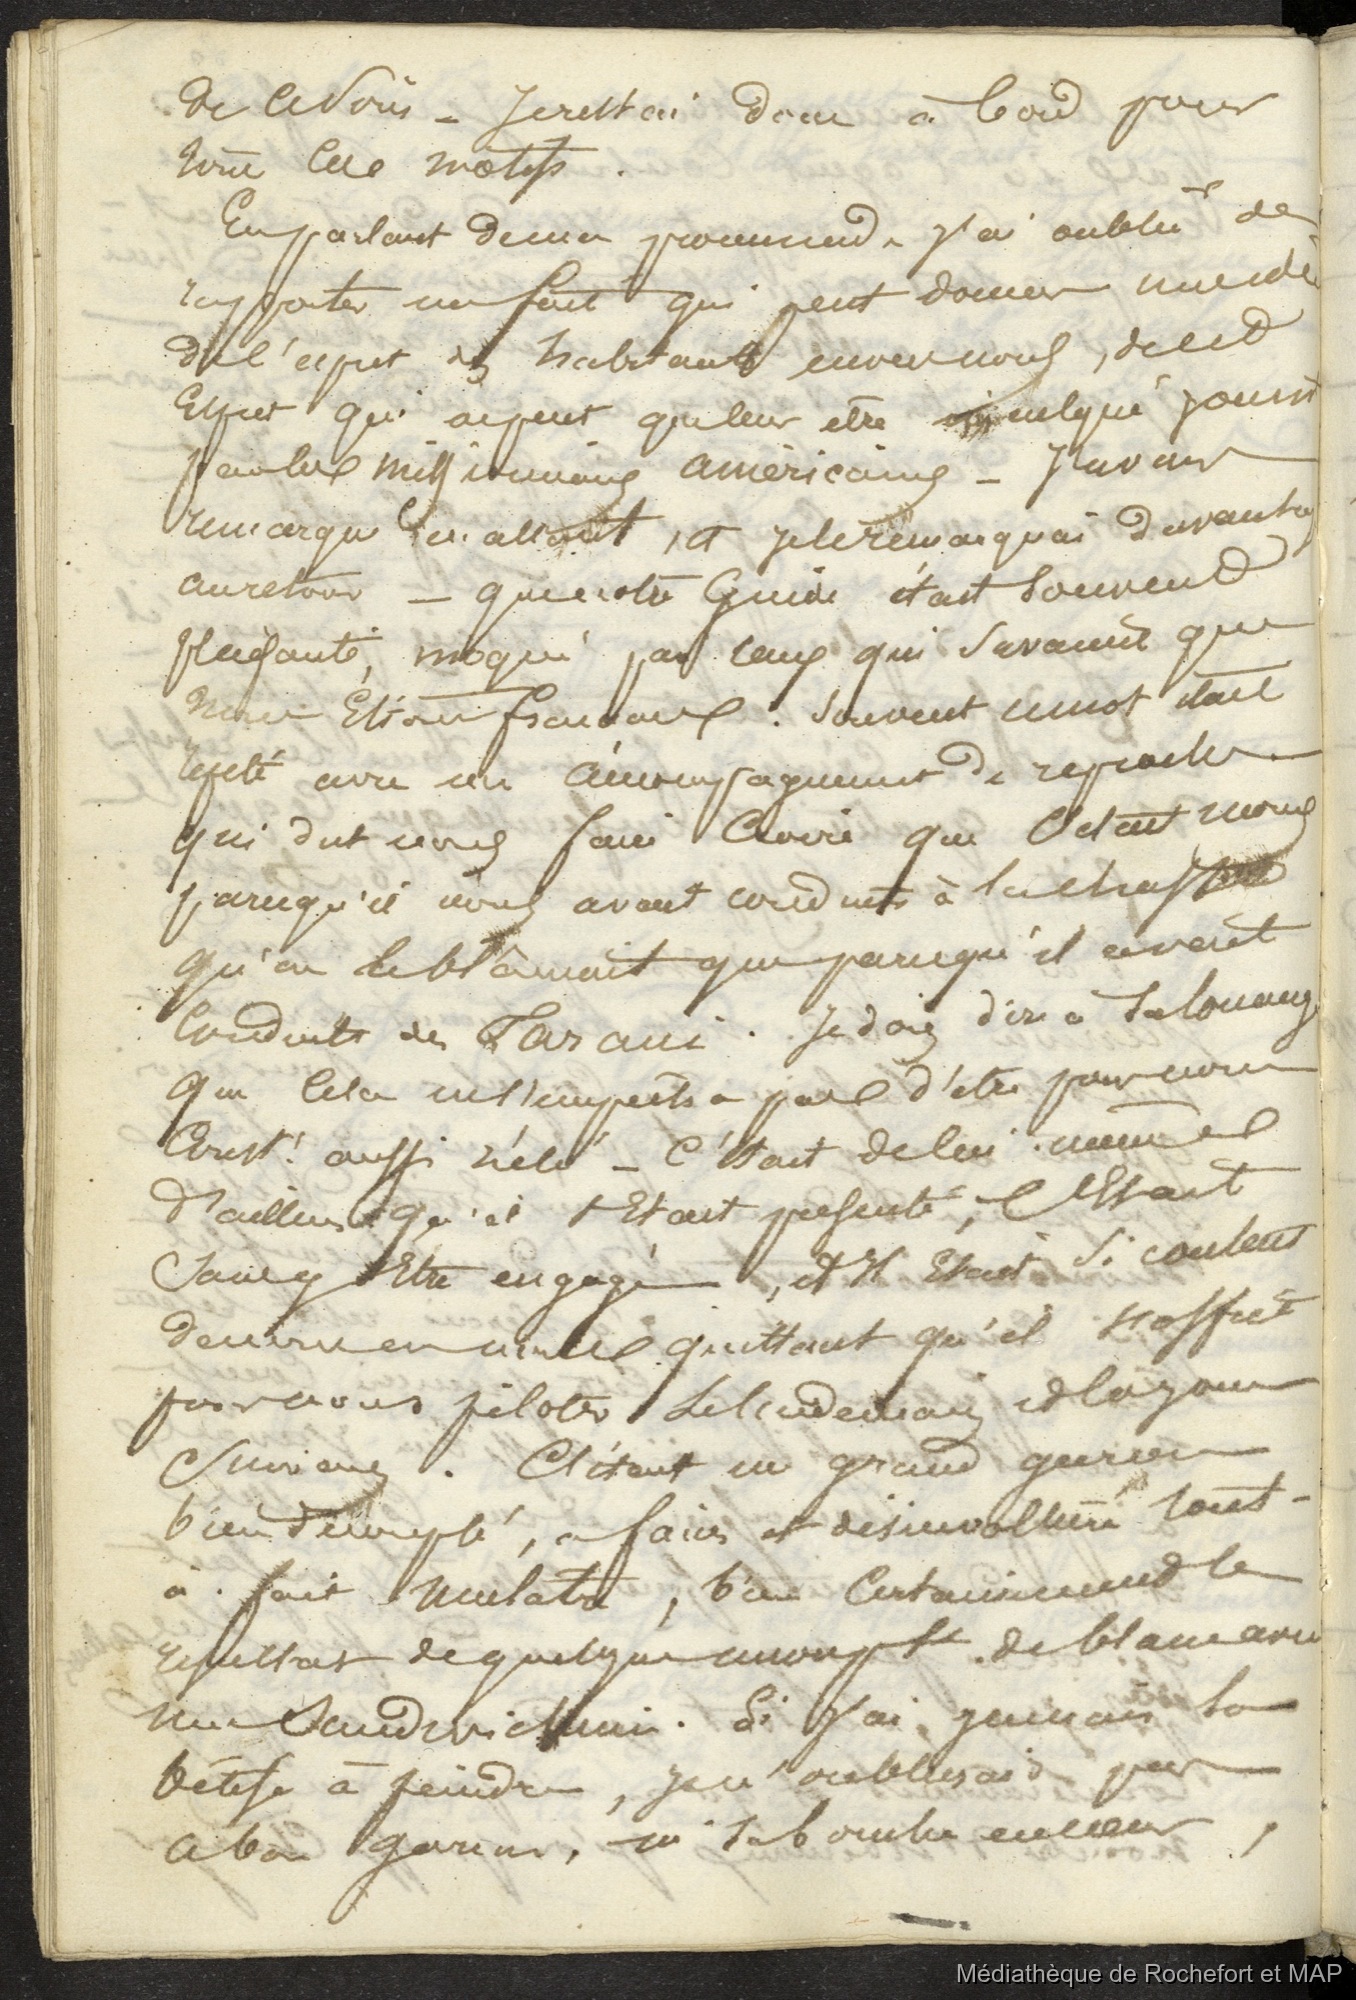 de ce Voris – Je restai donc à bord pour
tous ces motifs.
En parlant de ma promenade j'ai oublié de
rapporter un fait qui peut donner une idée
de l'esprit des habitants envers nous, de cet
Esprit qui ne peut que leur être inculqué
par les missionnaires américains – J'avais
remarqué en allant, et je le remarquai davantage
au retour – que notre Guide était souvent
plaisanté, moqué par ceux qui savaient que
nous Etions français. Souvent un mot était
répété avec un accompagnement de reproches
qui dut nous faire Croire que C'était moins
parcequ'il nous avait conduits à la chasse
qu'on le blâmait que parcequ'il avait
Conduits des Farani. Je dois dire à sa louange
que Cela ne l'empêcha pas d'être pour nous
tout aussi zélé – C'était de lui même
d'ailleurs qu'il s'Etait présenté, C'Etait
sans Etre engagé, et Il Etait si content
de nous en nous quittant qu'il s'offrit
pour nous piloter le lendemain et les jours
suivans. C'était un grand garçon
bien découplé, à faciès et désinvolture tout-
à-fait mulatre, bien Certainement le
résultat de quelque accoupl.t de blanc avec
une Sandwichienne. Si j'ai jamais la
bétise à peindre, je n'oublierai pas
ce bon garçon, ni sa bouche en cœur,
Médiathèque de Rochefort et MAP